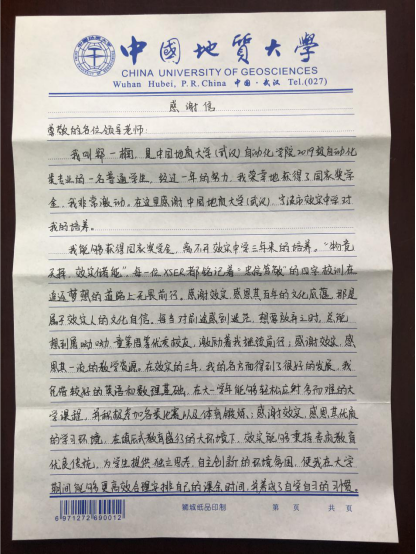 中國地質大學
CHINA UNIVERSITY OF GEOSCIENCES
Wuhan Hubei, P.R.China 中国·武汉 Tel.(027)
感谢信
尊敬的各位领导老师:
我叫郑一楠,是中国地质大学(武汉)自动化学院2019级自动化
类专业的一名普通学生,经过一年的努力,我荣幸地获得了国家奖学
金,我非常激动。在这里感谢中国地质大学(武汉),宁波市效实中学对
我的培养。
我能够获得国家奖学金,离不开效实中学三年来的培养。“物竞
天择,效实储能”,每一位XSER都铭记着“忠信笃敬”的四字校训在
追逐梦想的道路上无畏前行。感谢效实,感恩其百年的文化底蕴,那是
属于效实人的文化自信。每当对前途感到迷茫,想要放弃之时,总能
想到屠呦呦,童第周等优秀校友,激励着我把握前行;感谢效实,感
恩其一流的教学资源。在效实的三年,我的各方面得到了很好的发展,我
凭借较好的英语和数理基础,在大一学年能够轻松应对多而难的大
学课程,并积极参加各类比赛以及体育锻炼;感谢效实,感恩其优良
的学习环境,在应试教育盛行的大环境下,效实能够秉持素质教育
优良传统,为学生提供独立思考,自主创新的环境氛围,使我在大学
期间能够更高效合理安排自己的课余时间,并养成了自学自习的习惯。
6971272690012
纸品印制
第 页 共 页